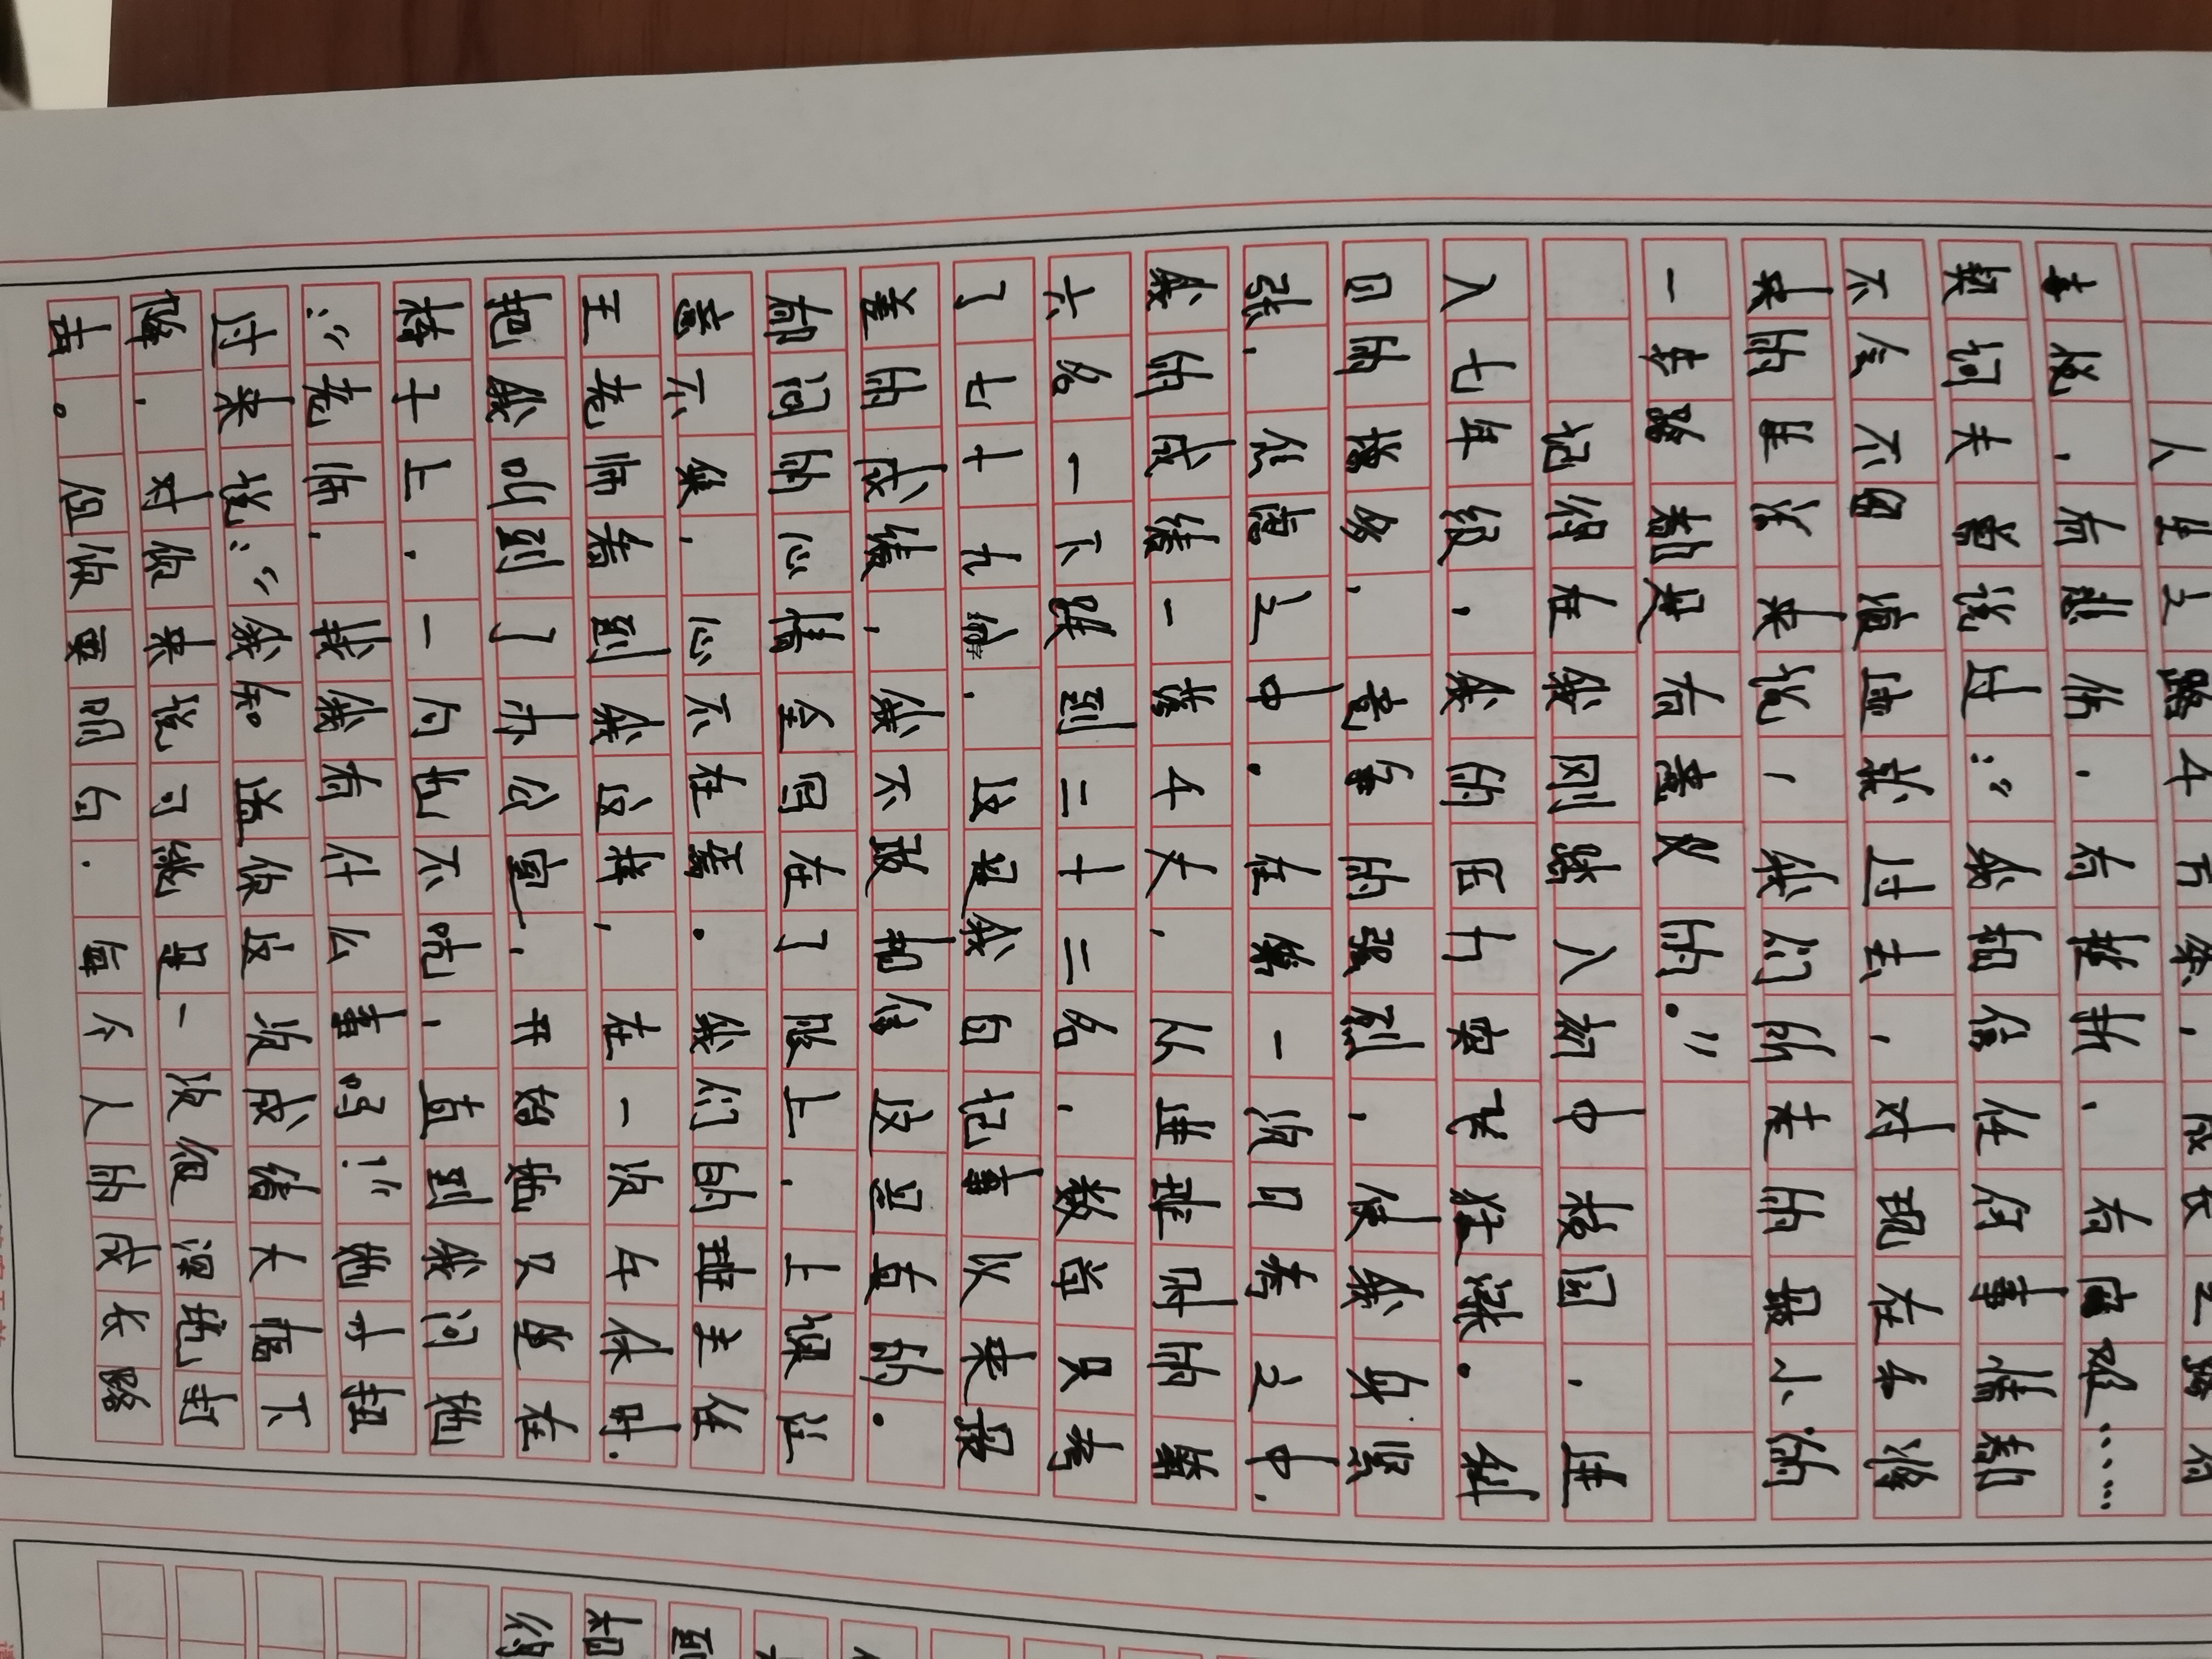 人生之路千百条,成长之路有
喜悦,有悲伤,有挫折,有困难……
契诃夫曾说过:"我相信任何事情都
不会不留痕迹就过去,对现在和将
来的生活来说,我们所走的最小的
一步路都是有意义的。"
记得在我刚踏入初中校园,进
入七年级,我的压力突飞猛涨。科
目的增多,竞争的强烈,使我身紧
张,之中。在第一次月考之中,
我的成绩一落千丈,从进班时的第
六名一下跌到二十二名,数学只考
了七十九分,这是我自记事以来最
差的成绩,我不敢相信这是真的。
郁闷的心情全写在了脸上,上课注
意不集,心不在焉。我们的班主任
王老师看到我这样,在一次午休时,
把我叫到了办公室,开始她只坐在
椅子上,一句也不吭,直到我问她
:"老师,找我有什么事吗!"她才扭
过来说:"我知道你这次成绩大幅下
降,对你来说可能是一次很深的打
击。但你要明白,每个人的成长路
到
知